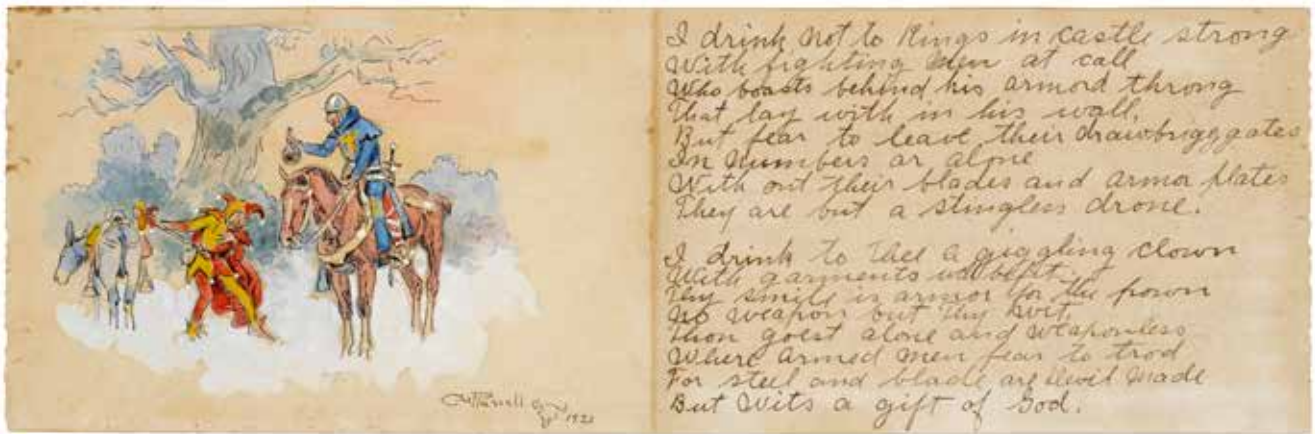 I drink not to Kings in castle strong
With fighting men at call
Who boasts behind his armord throng
That lay with in his wall,
But fear to leave their drawbrigg gates
In numbers or alone
With out their blades and armor plates
They are but a stingless drone.
I drink to thee a giggling clown
With garments
Thy smile is armor for the frown
No weapon but thy wit,
Thou goest alone and weaponless
Where armed men fear to trod
For steel and blade are Devil made
But Wits a gift of God.
CM Russell
1921